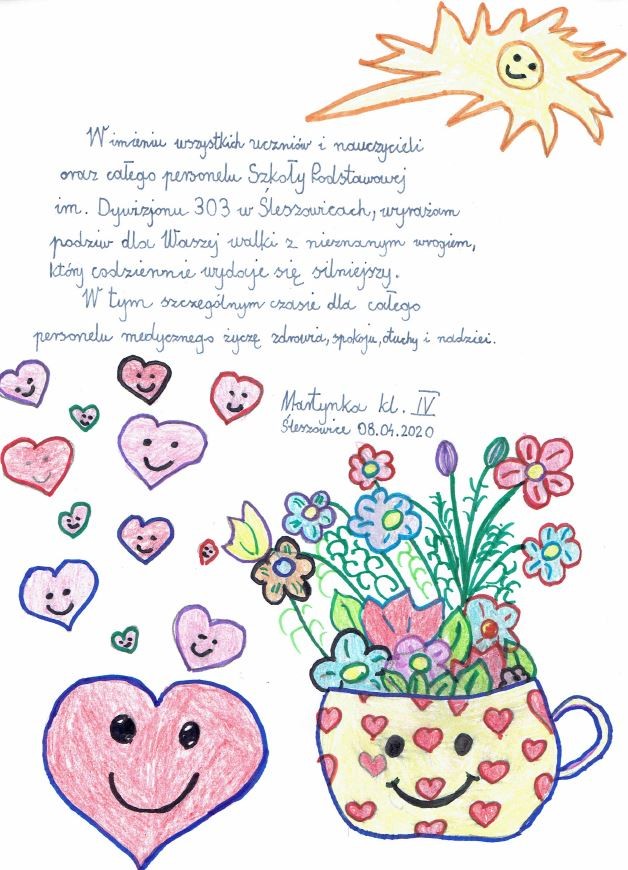 W imieniu wszystkich uczniów i nauczycieli
oraz całego personelu Szkoły Podstawowej
im. Dywizjonu 303 w Śleszowicach, wyrażam
podziw dla Waszej walki z nieznanym wrogiem,
który codziennie wydaje się silniejszy.
W tym szczególnym czasie dla całego
personelu medycznego życzę zdrowia, spokoju, otuchy i nadziei.
Martynka kl. IV
Śleszowice 08.04.2020